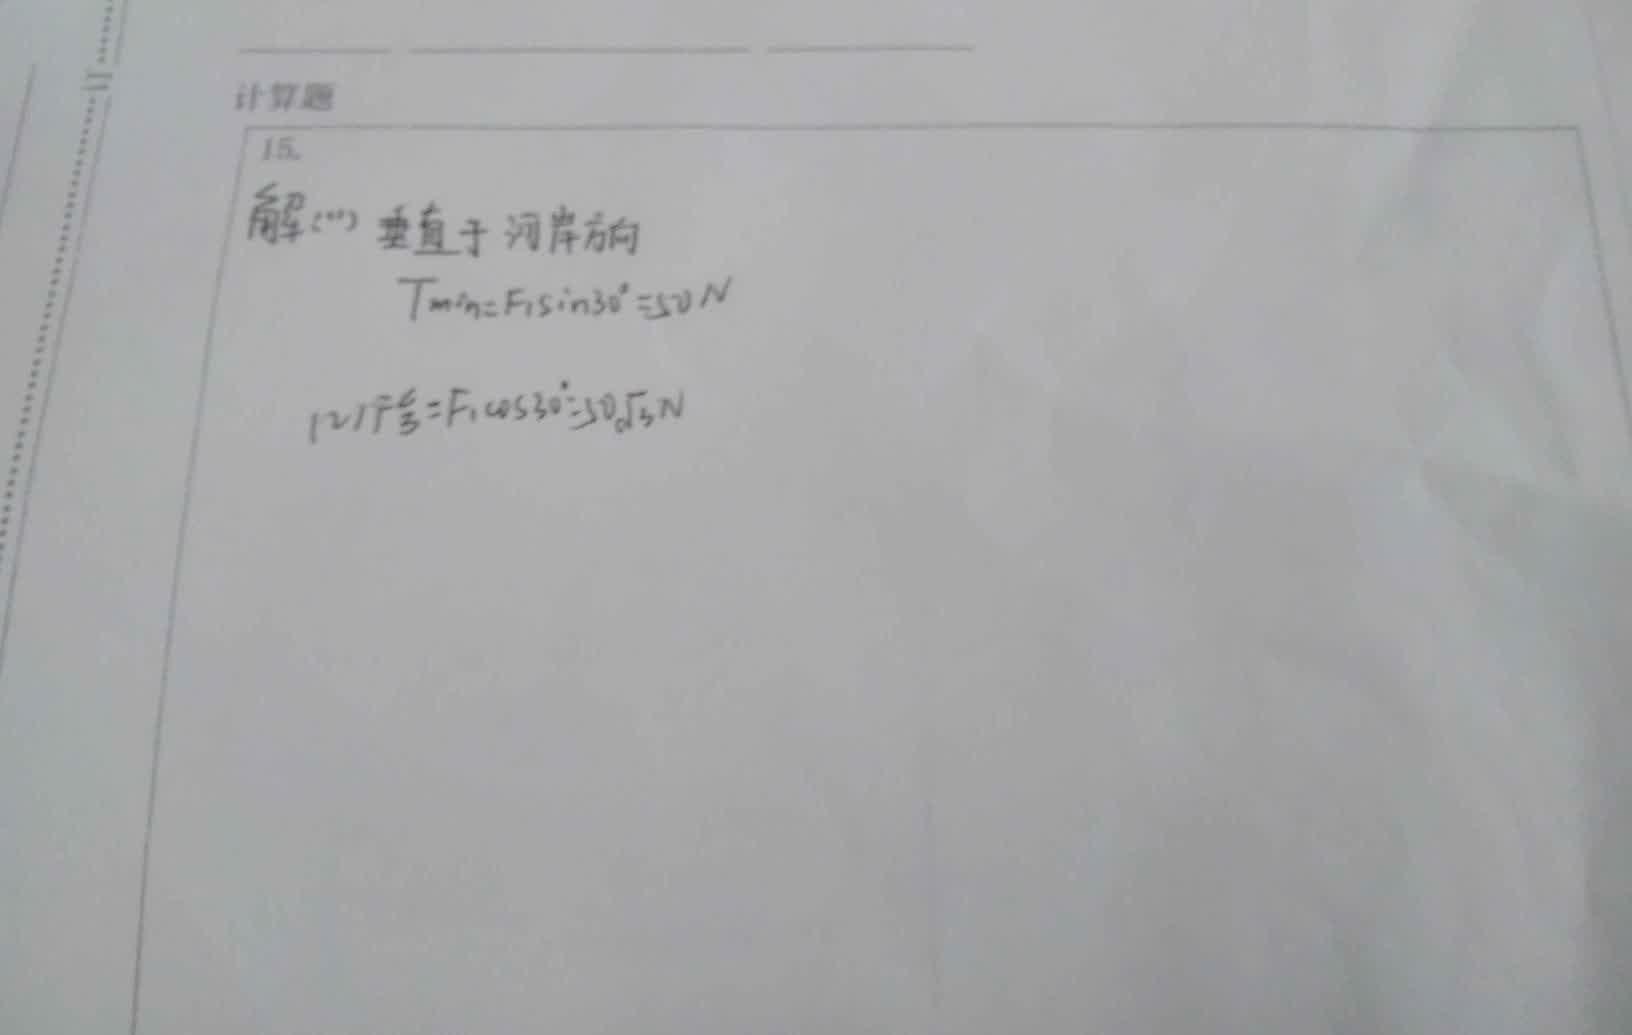 订
计算题
15.
解:(1) 垂直于河岸方向
Tmin=F₁sin30°=50N
(2)F合=F₁cos30°=50√3N